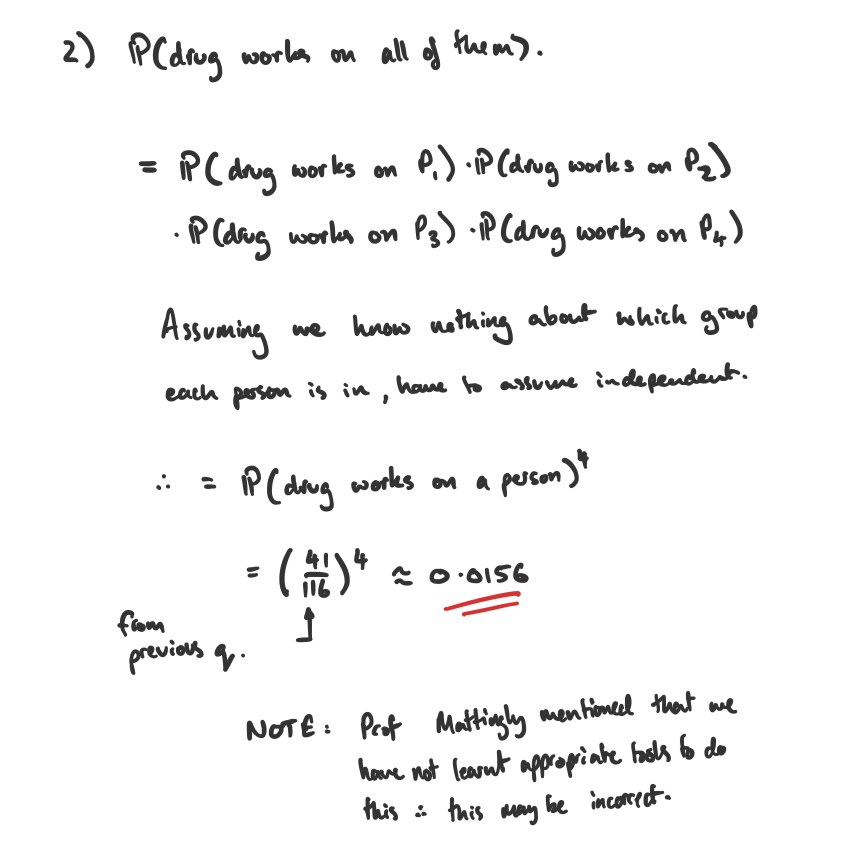 2) ℙ(drug works on all of them).
= ℙ(drug works on P₁) · ℙ(drug works on P₂)
· ℙ(drug works on P₃) · ℙ(drug works on P₄)
Assuming we know nothing about which group
each person is in, have to assume independent.
∴ = ℙ(drug works on a person)⁴
= (41/116)⁴ ≈ 0.0156
from
previous q.
NOTE: Prof Mattingly mentioned that we
have not learnt appropriate tools to do
this ∴ this may be incorrect.